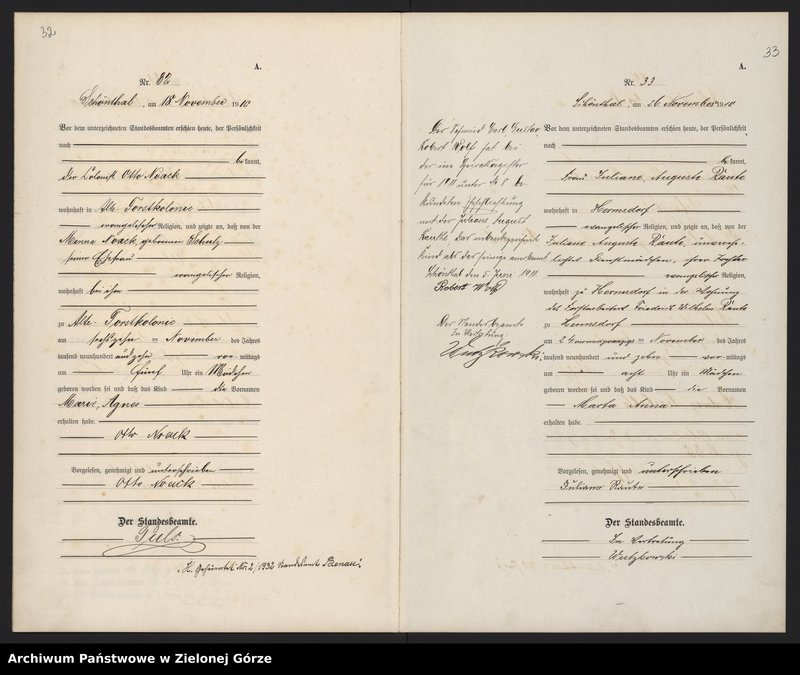 32
A.
Nr. 32
Schönthal, am 18. November 1910
Vor dem unterzeichneten Standesbeamten erschien heute, der Persönlichkeit
nach
bekannt,
der Kolonist Otto Noack
wohnhaft in Alte-Forstkolonie
evangelischer Religion, und zeigte an, daß von der
Noack, geborenen Schulz
seiner Ehefrau
evangelischer Religion,
wohnhaft bei ihm
zu Alte-Forstkolonie
am sechszehn = November des Jahres
tausend neunhundert und zehn vormittags
um fünf Uhr ein Mädchen
geboren worden sei und daß das Kind die Vornamen
Marie, Agnes
erhalten habe.
Otto Noack
Vorgelesen, genehmigt und unterschrieben
Otto Noack
Der Standesbeamte.
Nr. 2/1932 Standesamt
33
A.
Nr. 33
Schönthal, am 26. November 1910
Vor dem unterzeichneten Standesbeamten erschien heute, der Persönlichkeit
nach
bekannt,
Frau Juliane, Auguste Räute
wohnhaft in Hermsdorf
evangelischer Religion, und zeigte an, daß von der
Juliane Auguste Räute, unverehe-
lichtes Dienstmädchen, ihrer Tochter
evangelischer Religion,
wohnhaft zu Hermsdorf in der Wohnung
des Forstarbeiters Friedrich Wilhelm Räute
zu Hermsdorf
am = November des Jahres
tausend neunhundert und zehn vormittags
um acht Uhr ein Mädchen
geboren worden sei und daß das Kind die Vornamen
Marta Anna
erhalten habe.
Vorgelesen, genehmigt und unterschrieben
Juliane Räute
Der Standesbeamte.
In Vertretung
Der Schmied Carl Gustav
Robert Wolf hat bei
der im Heiratsregister
für 1911 unter No 8 be-
urkundeten Eheschließung
mit der Juliane August
das nebenbezeichnete
Kind als das seinige anerkannt.
Schönthal den 5. Juni 1911
Robert Wolf
Der Standesbeamte
In Vertretung
Archiwum Państwowe w Zielonej Górze